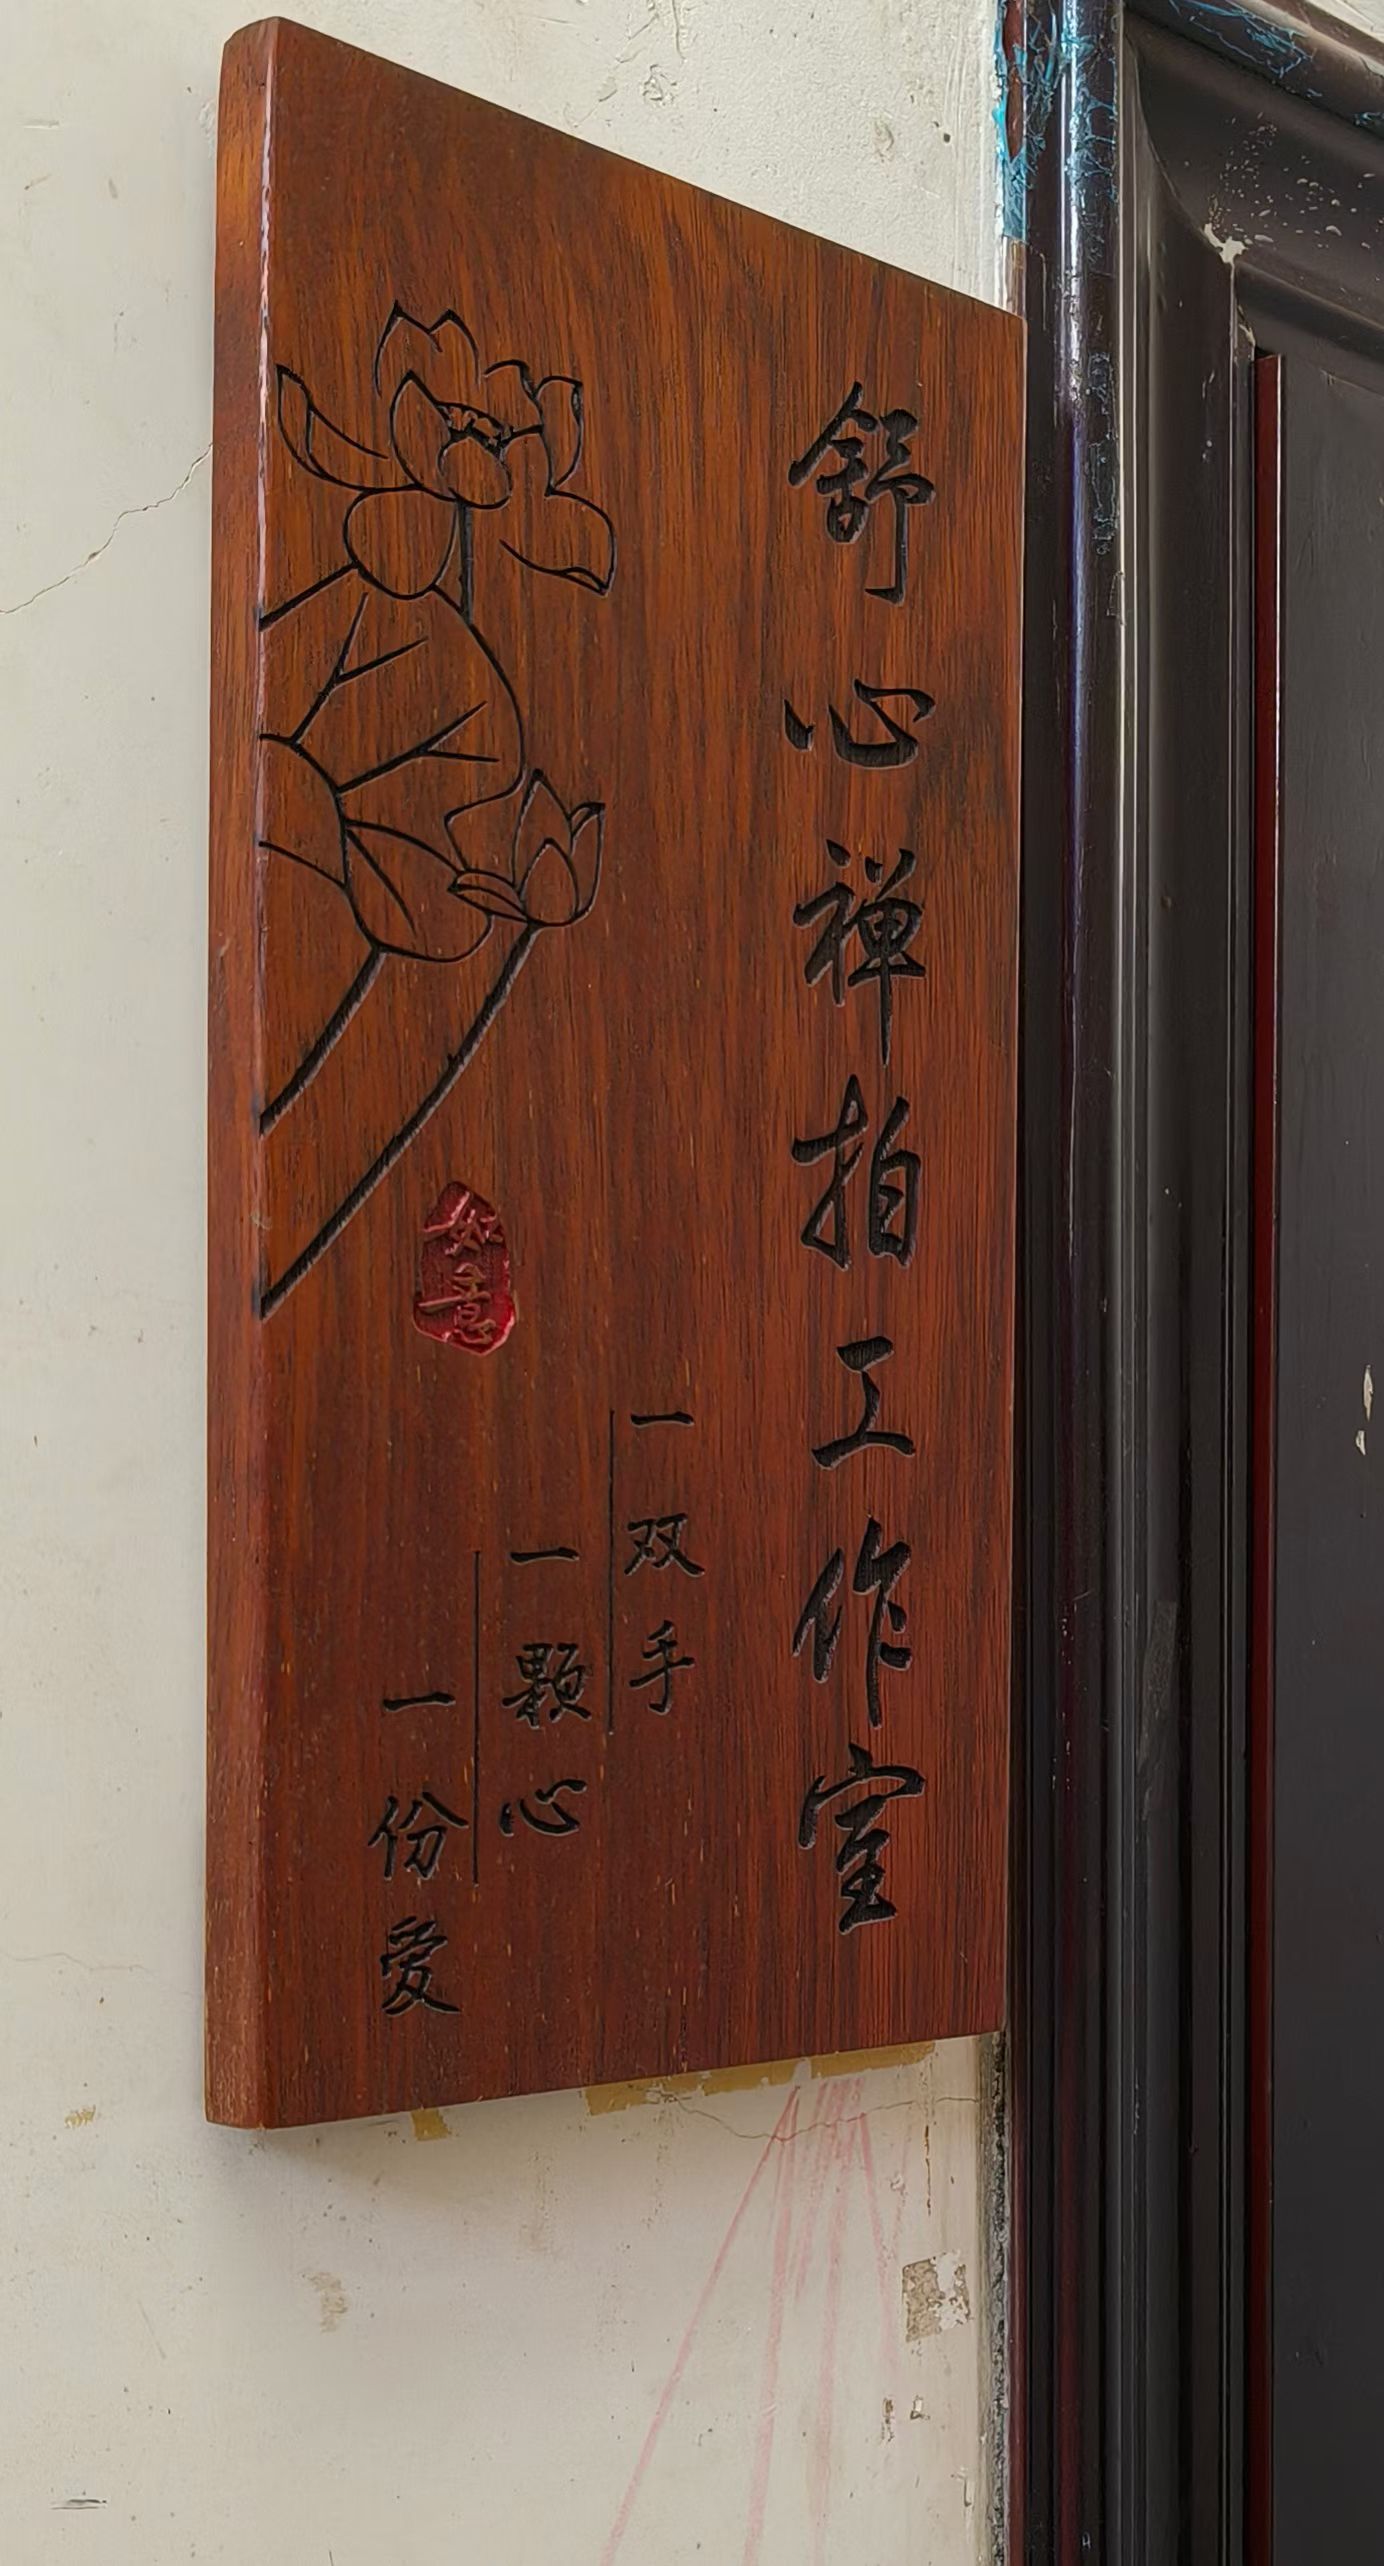 舒心禅拍工作室
一双手
一颗心
一份爱
如意